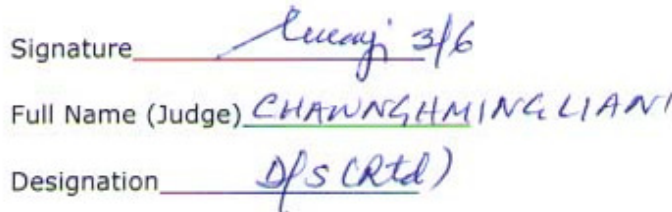 Signature 3/6
Full Name (Judge) CHAWNGHMINGLIANI
Designation D/S (Rtd)